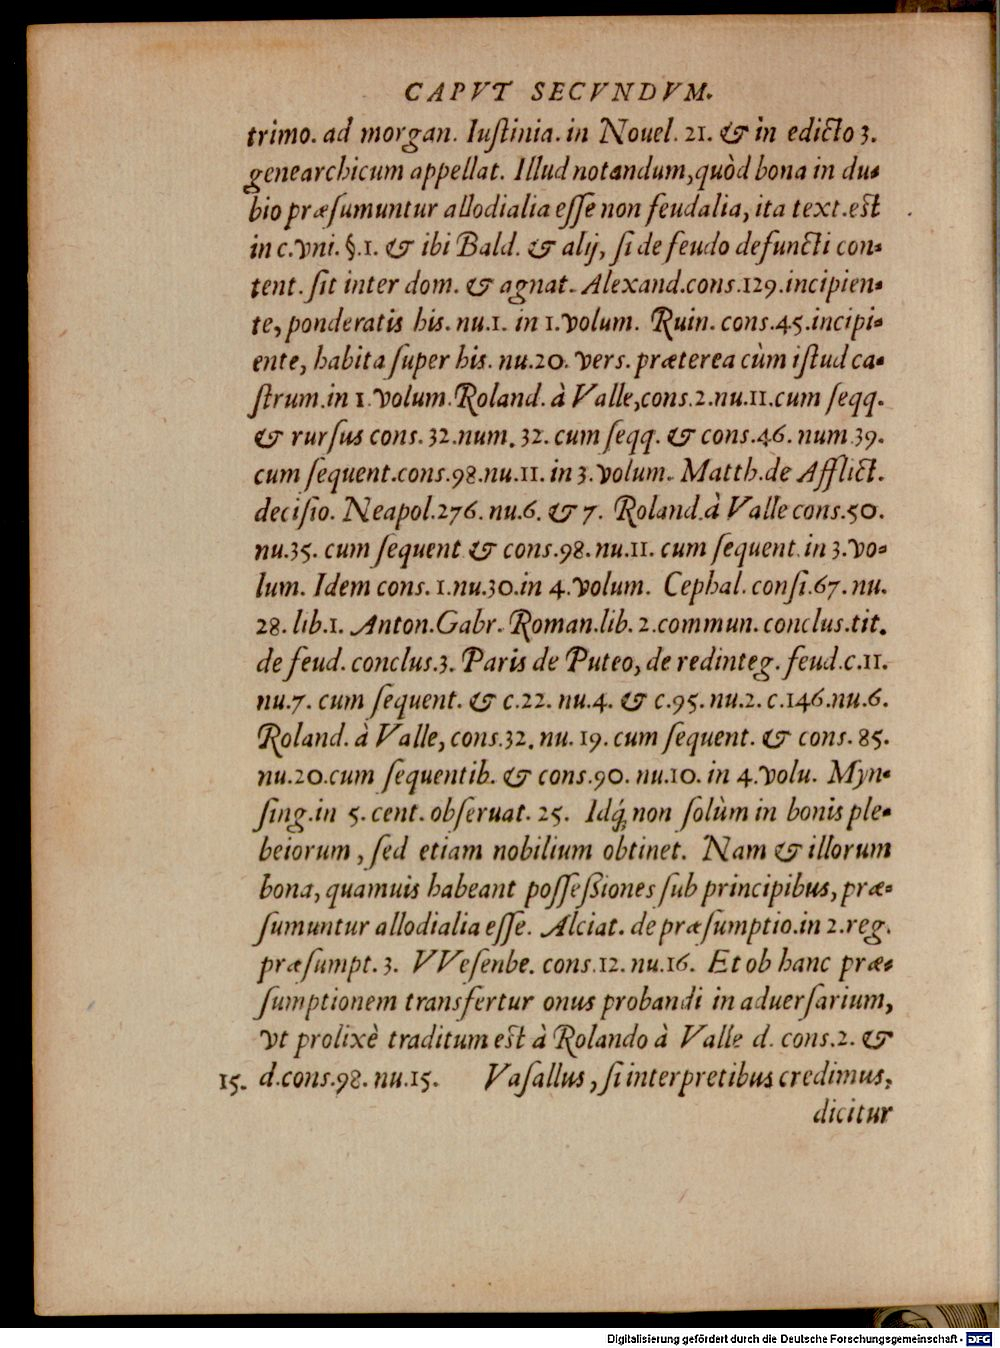 CAPVT SECVNDVM.
trimo. ad morgan. Iuſtinia. in Nouel. 21. & in edicto 3.
genearchicum appellat. Illud notandum, quòd bona in du-
bio præſumuntur allodialia eſſe non feudalia, ita text. est
in c. vni. §. 1. & ibi Bald. & alij, ſi de feudo defuncti con-
tent. ſit inter dom. & agnat. Alexand. cons. 129. incipien-
te, ponderatis his. nu. 1. in 1. volum. Ruin. cons. 45. incipi-
ente, habita ſuper his. nu. 20. vers. præterea cùm iſtud ca-
ſtrum. in 1. volum. Roland. à Valle, cons. 2. nu. 11. cum ſeqq.
& rurſus cons. 32. num. 32. cum ſeqq. & cons. 46. num 39.
cum ſequent. cons. 98. nu. 11. in 3. volum. Matth. de Afflict.
deciſio. Neapol. 276. nu. 6. & 7. Roland. à Valle cons. 50.
nu. 35. cum ſequent & cons. 98. nu. 11. cum ſequent. in 3. vo-
lum. Idem cons. 1. nu. 30. in 4. volum. Cephal. conſi. 67. nu.
28. lib. 1. Anton. Gabr. Roman. lib. 2. commun. conclus. tit.
de feud. conclus. 3. Paris de Puteo, de redinteg. feud. c. 11.
nu. 7. cum ſequent. & c. 22. nu. 4. & c. 95. nu. 2. c. 146. nu. 6.
Roland. à Valle, cons. 32. nu. 19. cum ſequent. & cons. 85.
nu. 20. cum ſequentib. & cons. 90. nu. 10. in 4. volu. Myn-
ſing. in 5. cent. obſeruat. 25. Idq́; non ſolùm in bonis ple-
beiorum, ſed etiam nobilium obtinet. Nam & illorum
bona, quamuis habeant poſſeſsiones ſub principibus, præ-
ſumuntur allodialia eſſe. Alciat. de præſumptio. in 2. reg.
præſumpt. 3. VVeſenbe. cons. 12. nu. 16. Et ob hanc præ-
ſumptionem transfertur onus probandi in aduerſarium,
vt prolixè traditum est à Rolando à Valle d. cons. 2. &
15. d. cons. 98. nu. 15. Vaſallus, ſi interpretibus credimus,
dicitur
Digitalisierung gefördert durch die Deutsche Forschungsgemeinschaft - DFG